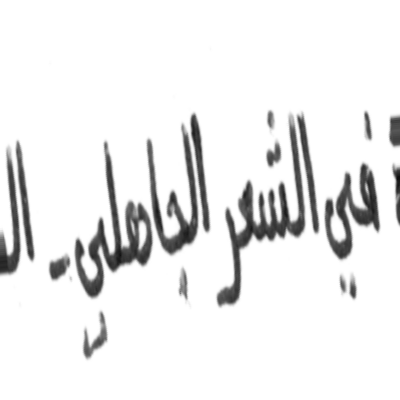 في الشعر الجاهلي -